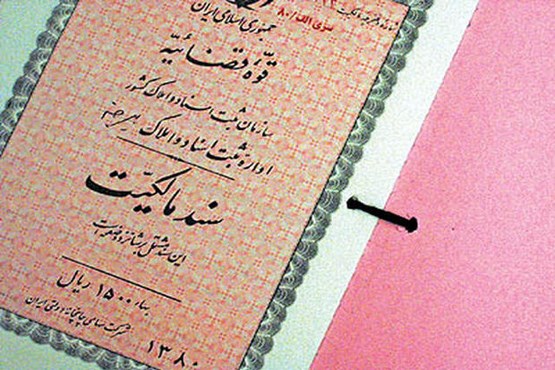 سری الف/۸۰
جمهوری اسلامی ایران
قوهٔ قضائیه
سازمان ثبت اسناد و املاک کشور
اداره ثبت اسناد و املاک
سند مالکیّت
این سند مشتمل بر شانزده صفحه است
بهاء ۱۵۰۰ ریال
شرکت سهامی چاپخانه دولتی ایران
۱۳۸۰